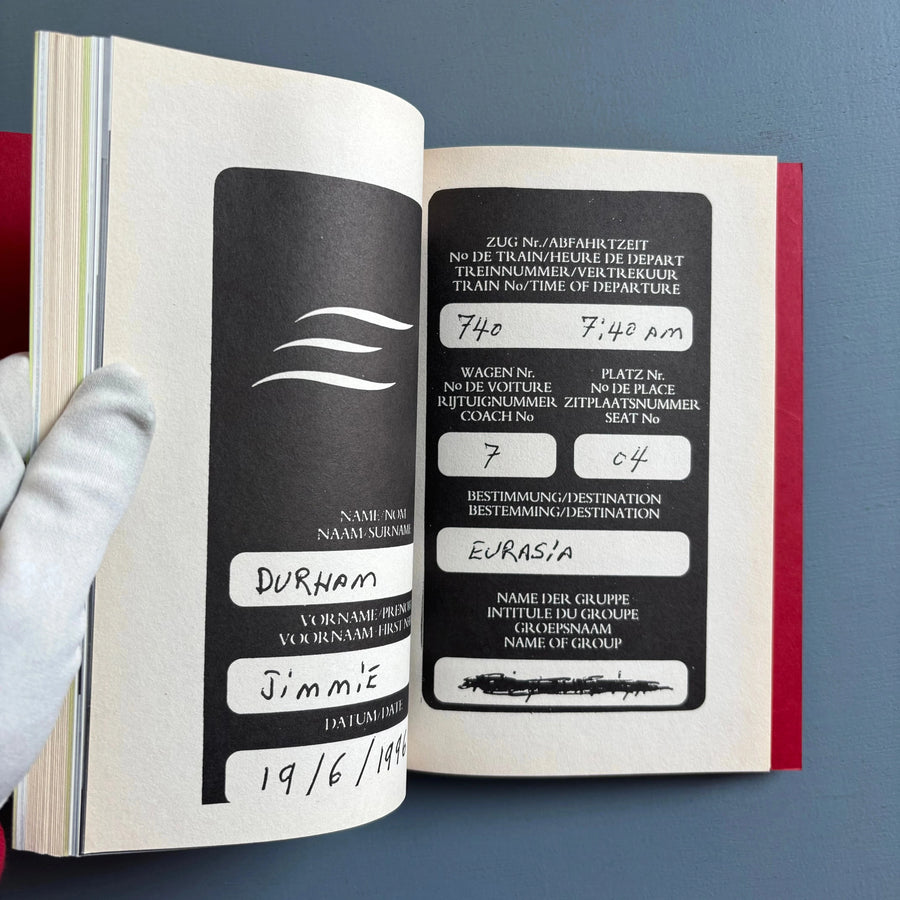 NAME/NOM
NAAM/SURNAME
DURHAM
VORNAME/PRENO
VOORNAAM/FIRST N
JiMMiE
DATUM/DATE
19/6/1996
ZUG Nr./ABFAHRTZEIT
No DE TRAIN/HEURE DE DEPART
TREINNUMMER/VERTREKUUR
TRAIN No/TIME OF DEPARTURE
740 7;40 AM
WAGEN Nr.
No DE VOITURE
RIJTUIGNUMMER
COACH No
7
PLATZ Nr.
No DE PLACE
ZITPLAATSNUMMER
SEAT No
04
BESTIMMUNG/DESTINATION
BESTEMMING/DESTINATION
EURASiA
NAME DER GRUPPE
INTITULE DU GROUPE
GROEPSNAAM
NAME OF GROUP